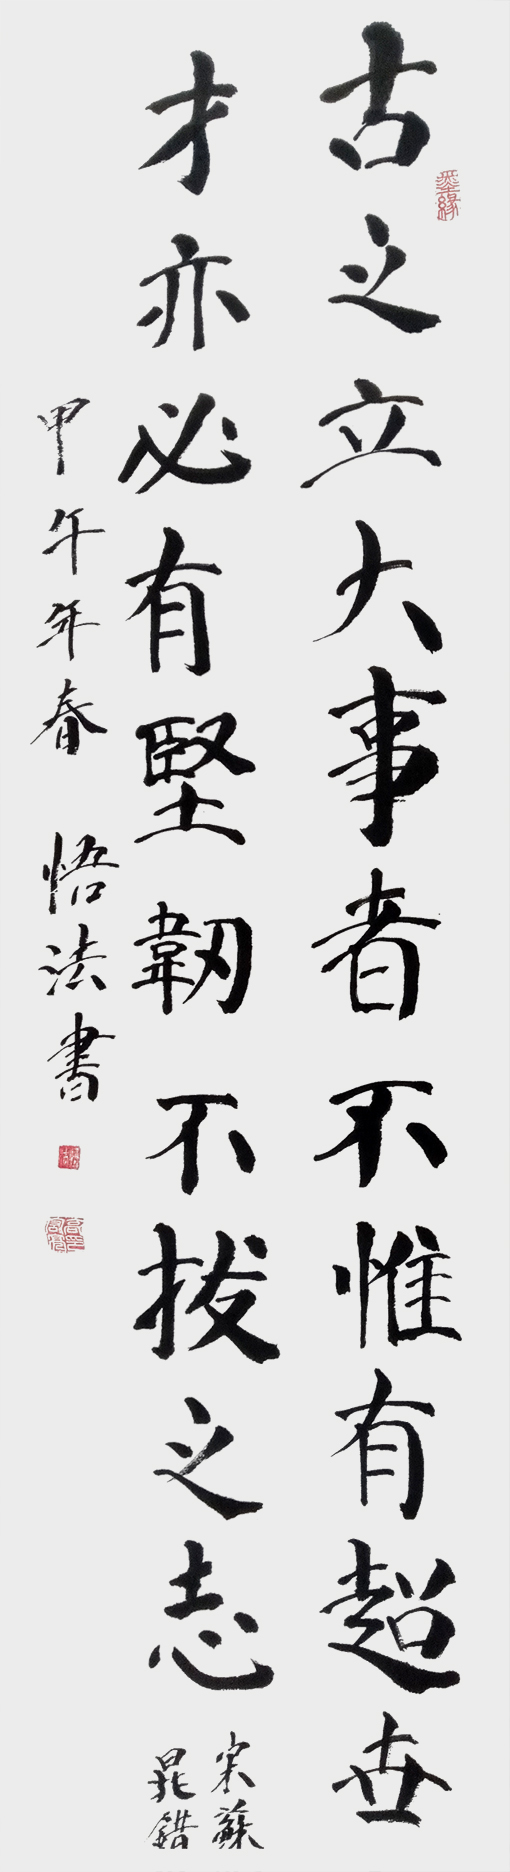 古之立大事者不惟有超世
才亦必有堅韌不拔之志
宋蘇
晁錯
甲午年春 悟法書
墨緣